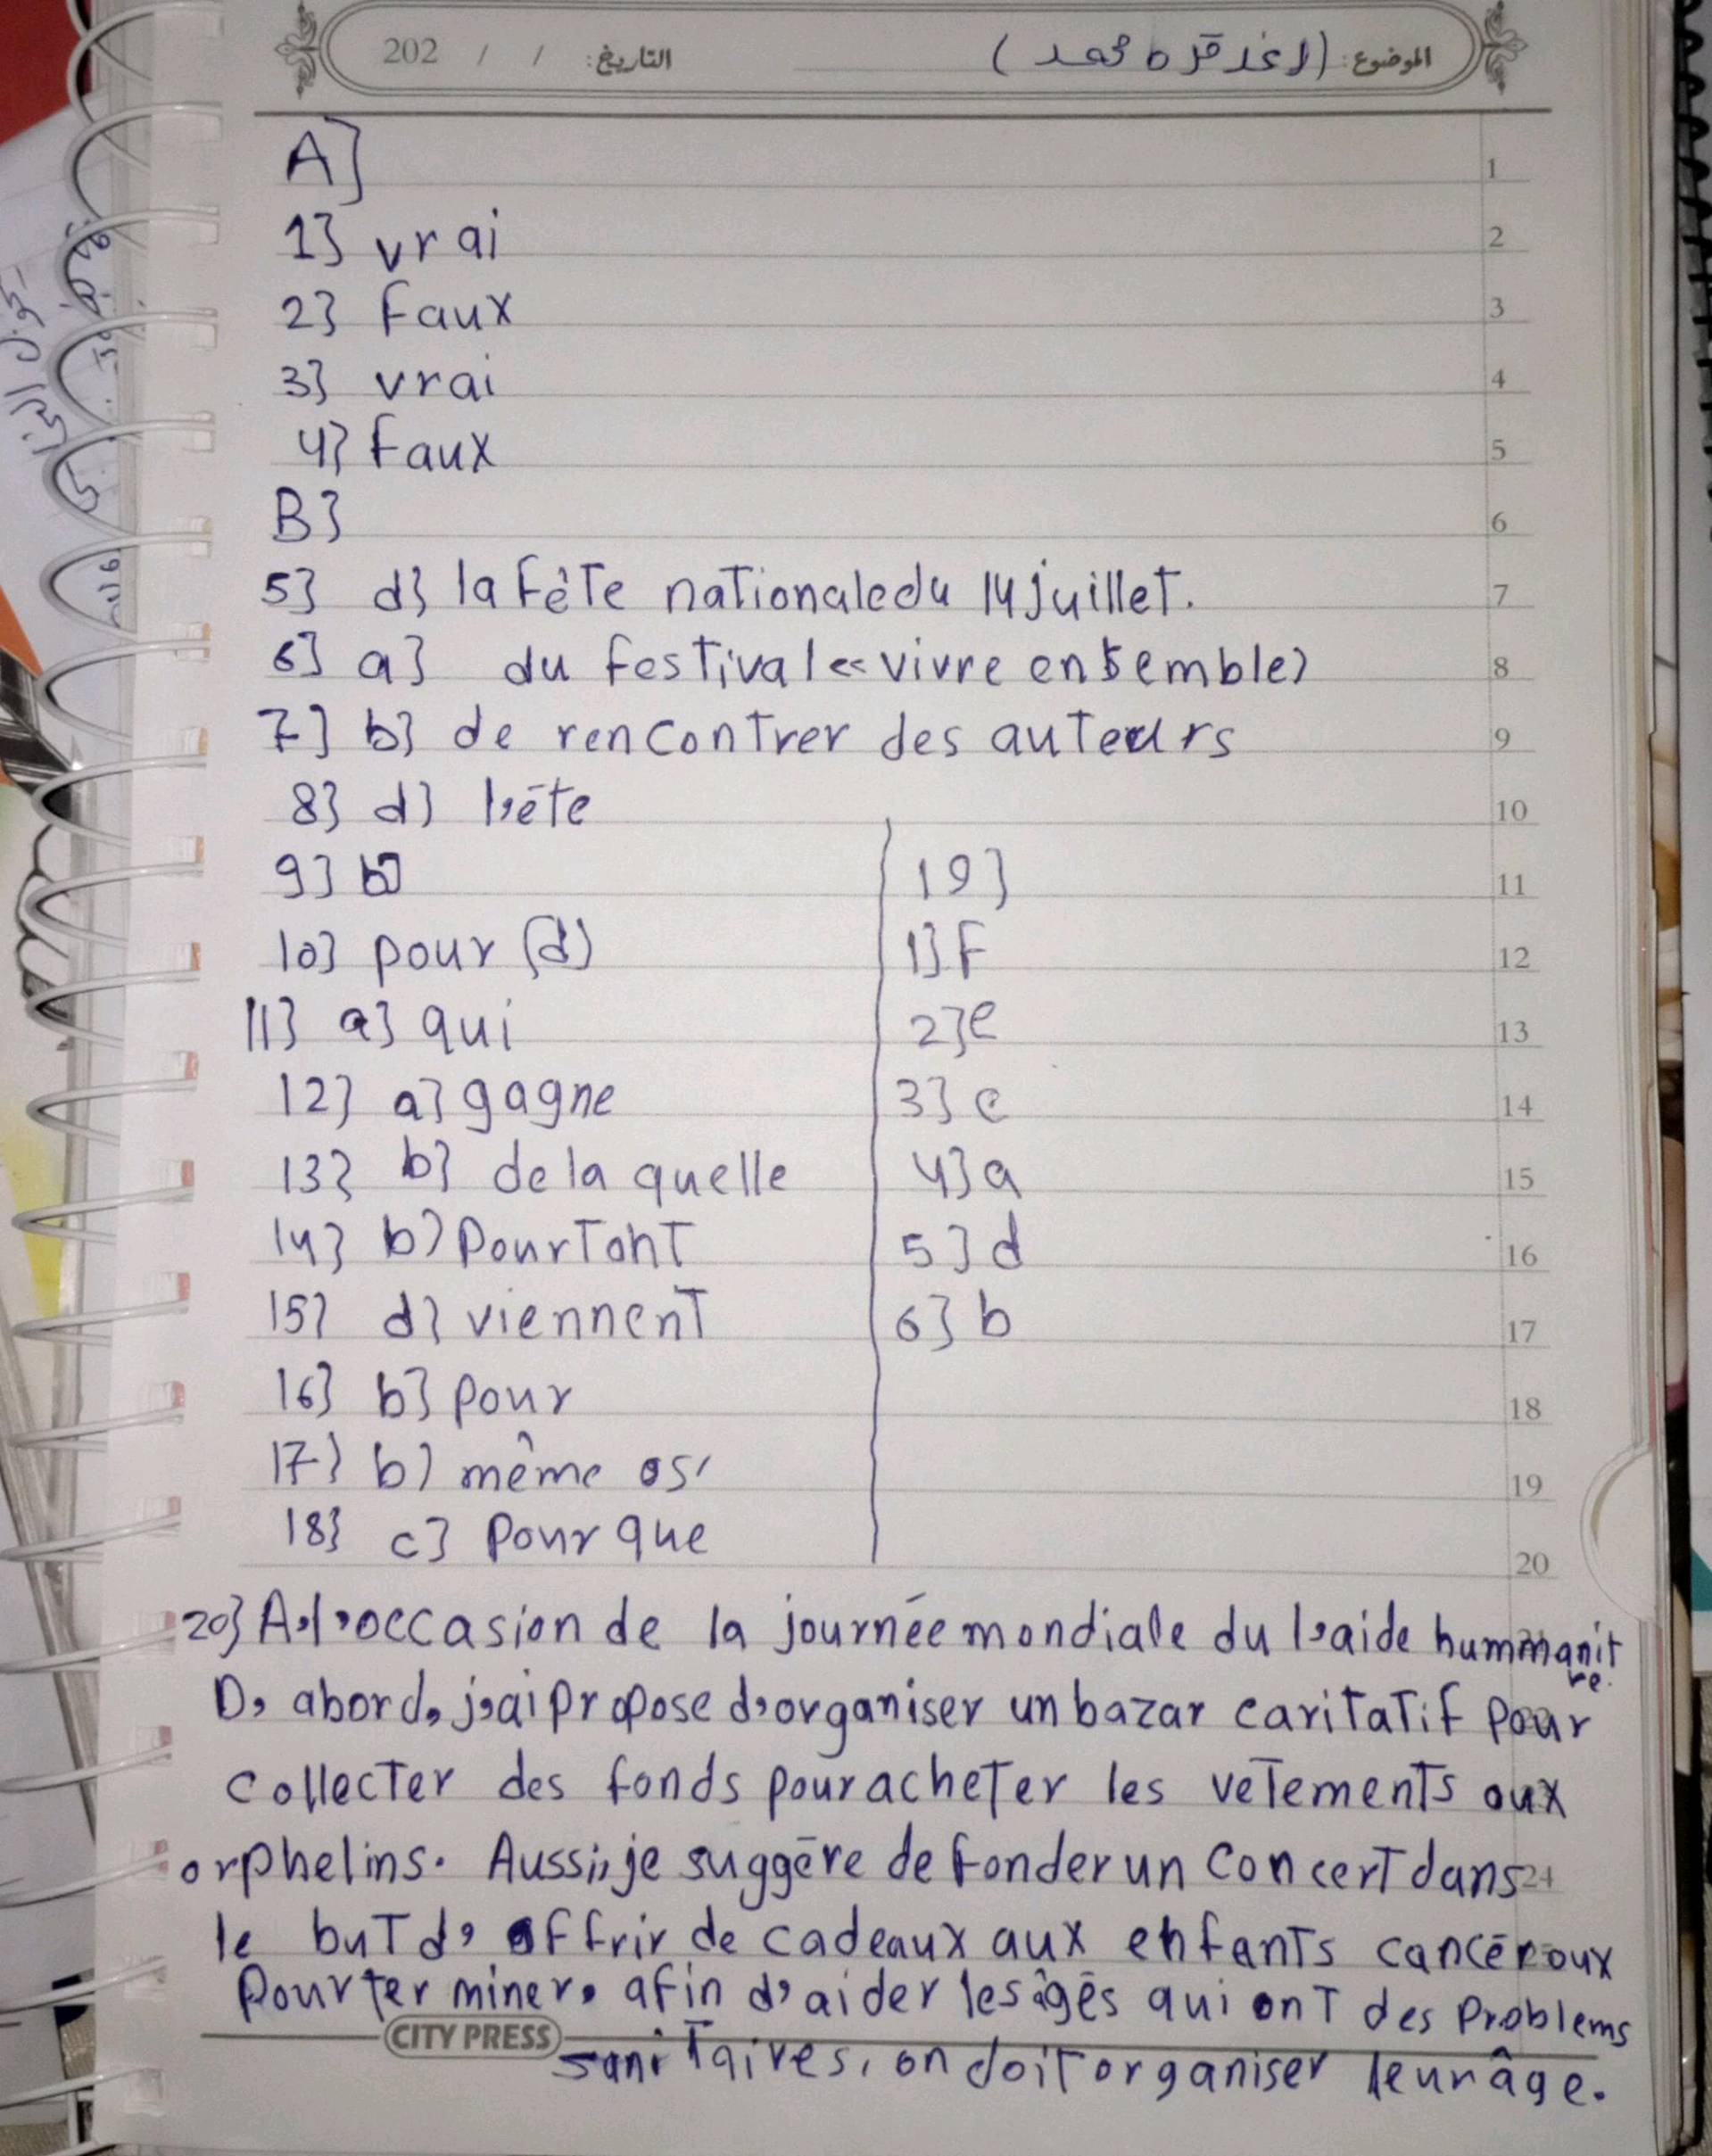 الموضوع: (لاغد قره محمد) التاريخ: / / 202
A]
1} vrai
2} Faux
3} vrai
4} faux
B}
5} d} la Fête nationale du 14 juillet.
6] a} du festival << vivre ensemble>
7] b} de rencontrer des auteurs
8} d) l'éte
9} b]
10} pour (d)
11} a} qui
12} a} gagne
13} b} de la quelle
14} b) PourTant
15} d} viennent
16} b} pour
17} b) même
18} c] Pour que
19}
1} F
2} e
3} c
4} a
5} d
6} b
20} A l'occasion de la journée mondiale du l'aide hummanit
re.
D'abord, j'ai propose d'organiser un bazar caritatif pour
collecter des fonds pour acheter les vetements aux
orphelins. Aussi, je suggère de fonder un concert dans
le but d'offrir de cadeaux aux enfants cancéroux
Pour terminer, afin d'aider les âgés qui ont des Problems
sanitaires, on doit organiser leur âge.
1
2
3
4
5
6
7
8
9
10
11
12
13
14
15
16
17
18
19
20
24
CITY PRESS